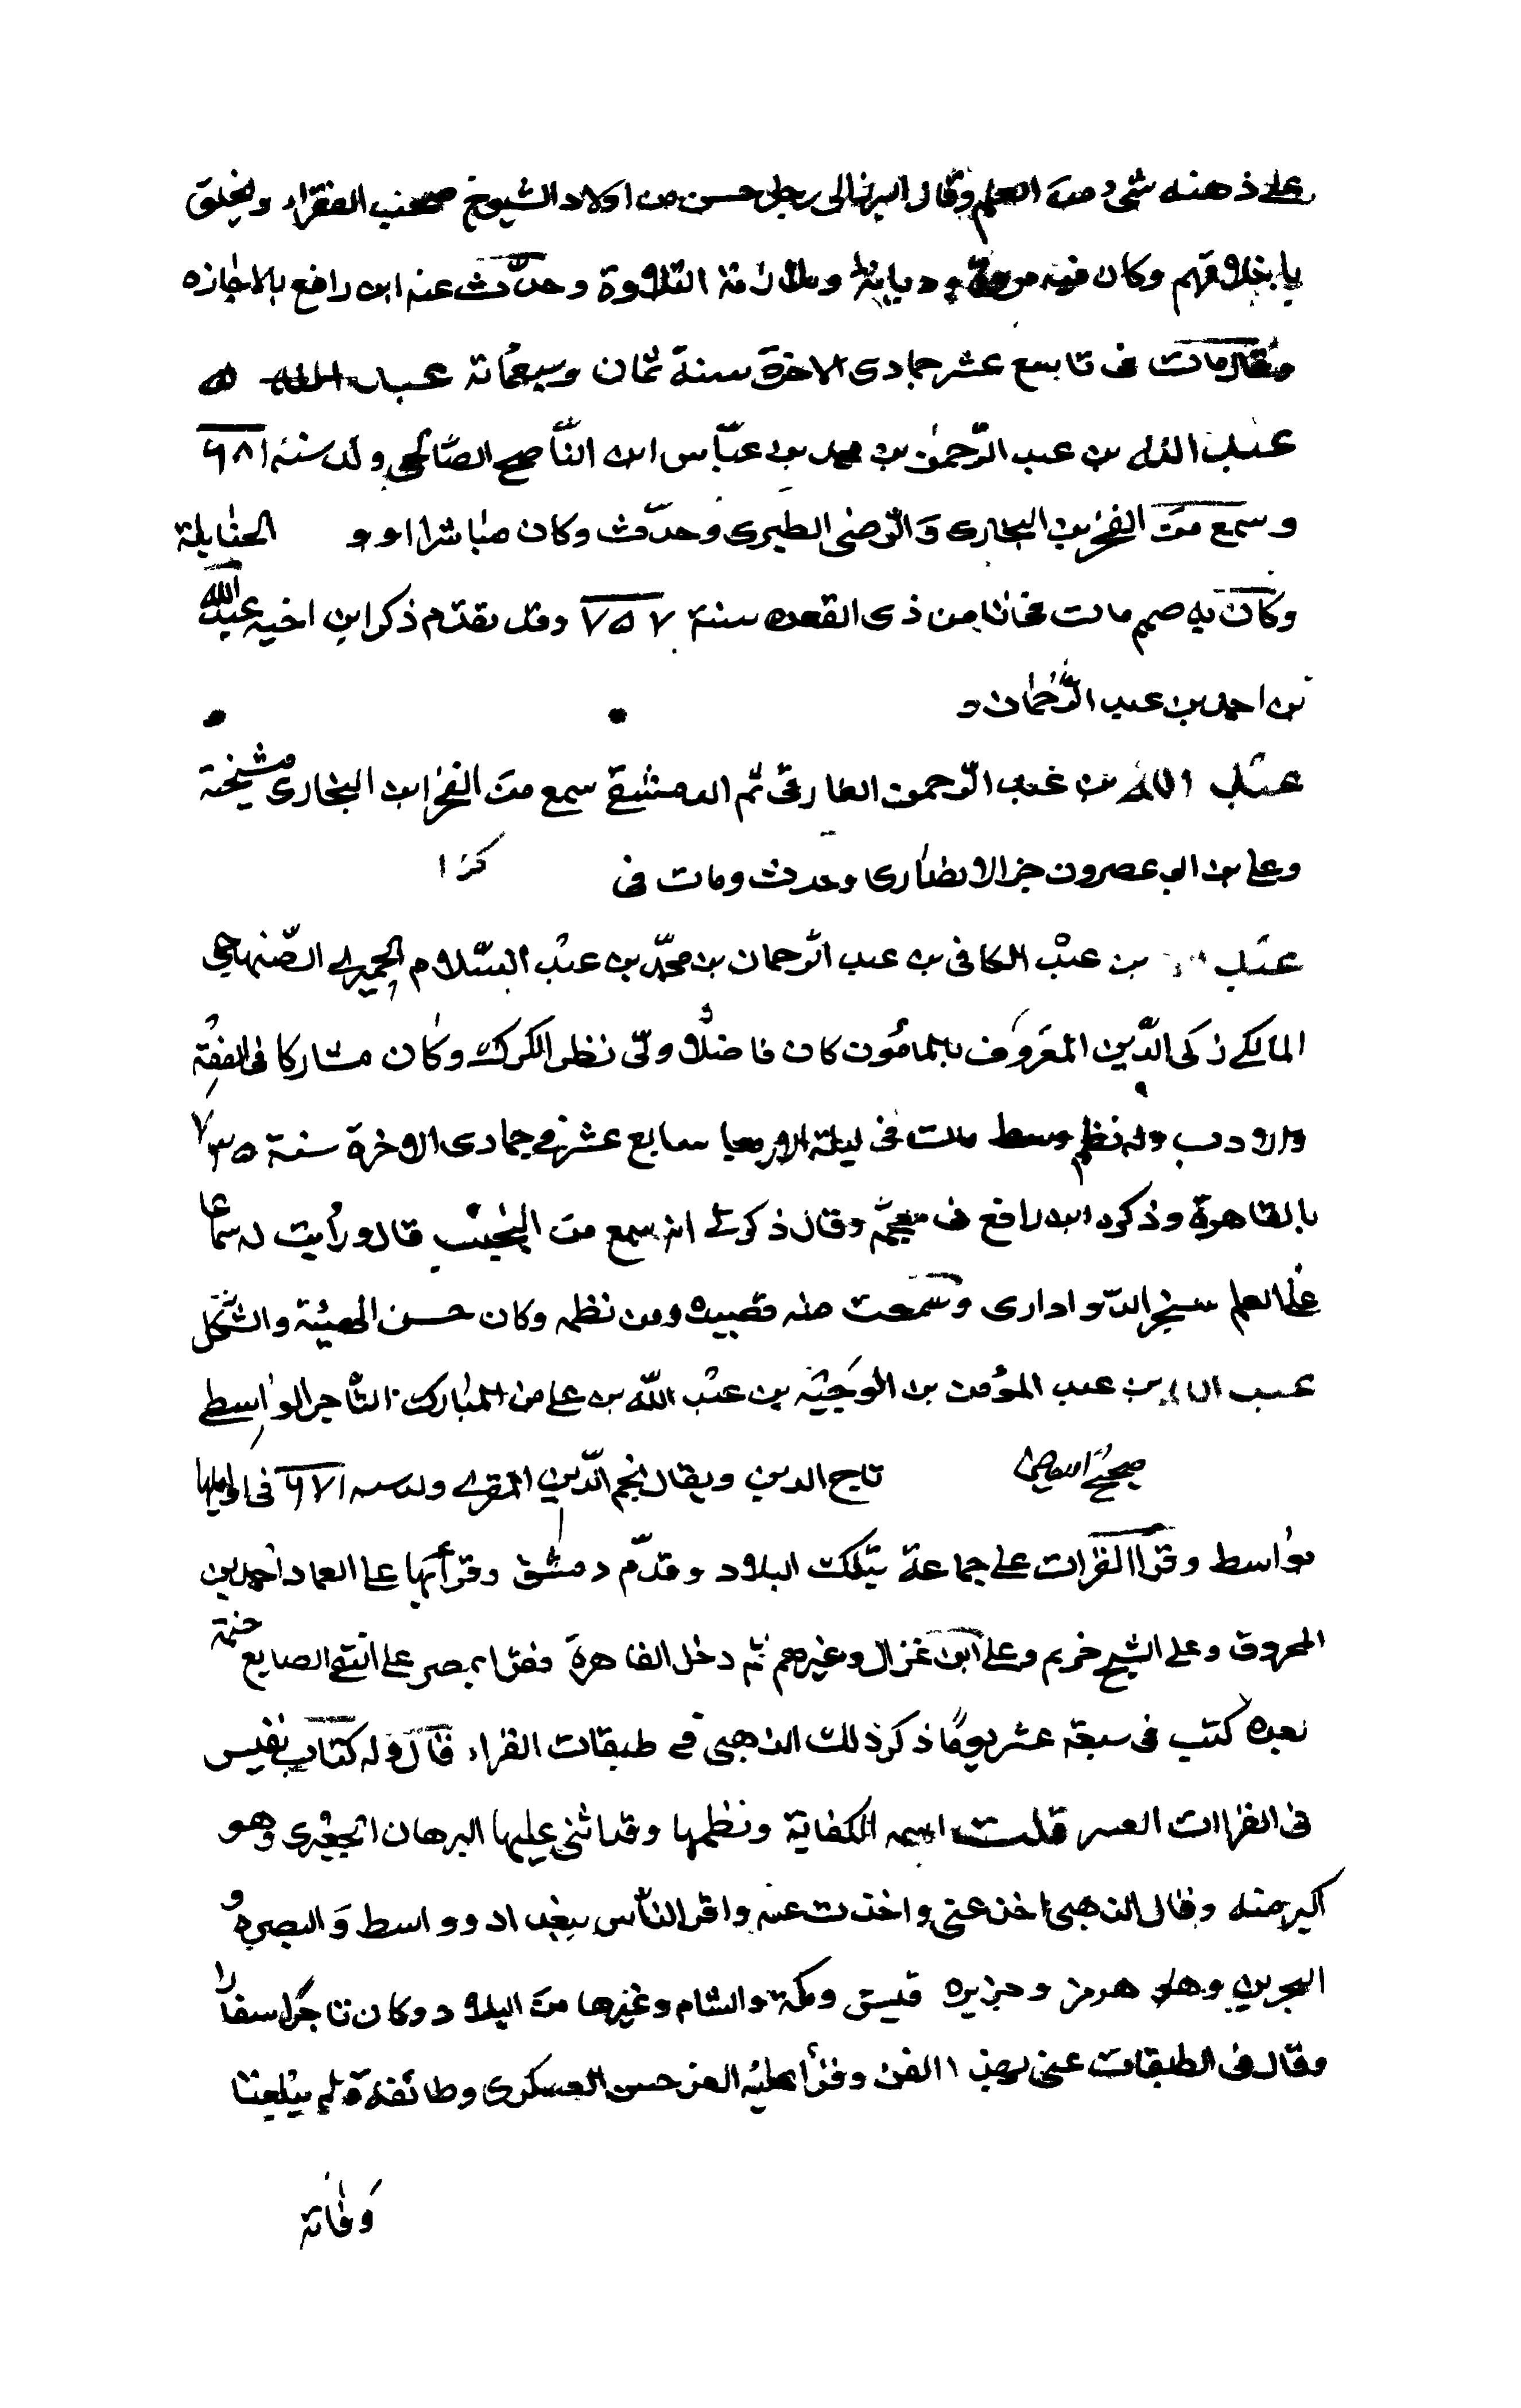 على ذهنه شئ من العلم وقال البرزالى رجل حسن من اولاد الشيوخ صحب الفقراء وتخلق
باخلاقهم وكان فيه مروة وديانة وملازمة التلاوة وحدّث عنه ابن رافع بالاجازه
وقال مات فى تاسع عشر جمادى الاخرة سنة ثمان وسبعمائة عبد الله
عبد الله بن عبد الرّحمن بن محمد بن عبّاس ابن النّاصح الصّالحى ولد سنة ٦٨١
وسمع من الفخر بن البخارى وَالرّضى الطبرى وحدّث وكان مباشرا او و الحنابلة
وكان به صمم مات فى ثامن ذى القعده سنة ٧٥٧ وقد تقدّم ذكر ابن اخيه عبد الله
بن احمد بن عبد الرّحمان
عبد الله بن عبد الرّحمن الفارقى ثم الدمشقى سمع من الفخر ابن البخارى مشيخته
وعلى بن ابى عصرون جز الانصارى وحدث ومات فى كذا
عبد الله بن عبد الكافى بن عبد الرّحمان بن محمّد بن عبد السّلام الحميرى الصّنهاجي
المالكى زكى الدّين المعروف بالمامُون كان فاضلا ولّى نظر الكرك وكان مشاركا فى الفقه
والادب وله نظم وسط مات فى ليلة الاربعا سابع عشرى جمادى الاخرة سنة ٧٣٥
بالقاهرة وذكره ابن رافع فى معجمه وقال ذكر لى انه سمع من النجيب قال ورأيت له سماعا
على العلم سنجر الدّوادارى وسَمعت منه قصيدة من نظمه وكان حسن الهيئة والشّكل
عبد الله بن عبد المؤمن بن الوَجيه بن عبد اللّه بن على بن المبارك التّاجر الواسطى
تاج الدين ويقال نجم الدّين المقرى ولد سنه ٦٧١ فى اوايلها
بواسط وقرا القرات على جماعة بتلك البلاد وقدّم دمشق وقرأ بها على العماد احمد بن
المحروق وعلى الشيخ خريم وعلى ابن غزال وغيرهم ثم دخل القاهرة فقرا بمصر على التقى الصايغ ختمة
بعده كتب فى سبعة عشر يومًا ذكر ذلك الذهبى فى طبقات القراء قال وله كتاب نفيس
فى القراات العسر قلت اسمه الكفاية ونظمها وقد اثنى عليها البرهان الجعبرى وهو
اكبر منه وقال الذهبى اخذ عنى واخذت عنه واقرا النّاس ببغداد وواسط وَالبصره و
البحرين وهلو هرمز وجزيره قيس ومكة والشام وغيرها من البلاد وكان تاجرا سفارا
وقال فى الطبقات عنى بهذا الفن وقرأ عليه العز حسن العسكرى وطائفة لم يبلغنا
وَفاته